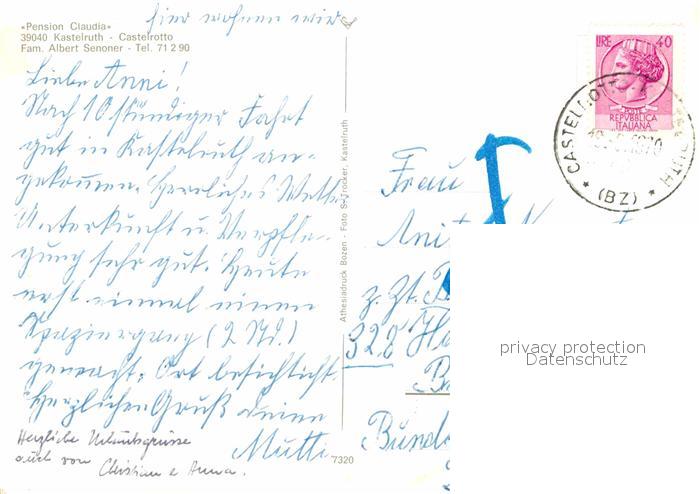 hier wohnen wir
«Pension Claudia»
39040 Kastelruth - Castelrotto
Fam. Albert Senoner - Tel. 71 2 90
Liebe Anni!
Nach 10 stündiger Fahrt
gut in Kastelruth an-
gekommen. Herrliches Wetter
Unterkunft u. Verpfle-
gung sehr gut. Heute
erst einmal einen
Spaziergang (2 Std.)
gemacht, Ort besichtigt.
Herzlichen Gruß deine
Mutti
Herzliche Urlaubsgrüsse
auch von Christian e Anna.
7320
Athesiadruck Bozen - Foto S. Trocker, Kastelruth
LIRE 40
POSTE
REPVBBLICA
ITALIANA
CASTELROTTO
(BZ)
Frau
z. Zt.
328
privacy protection
Datenschutz